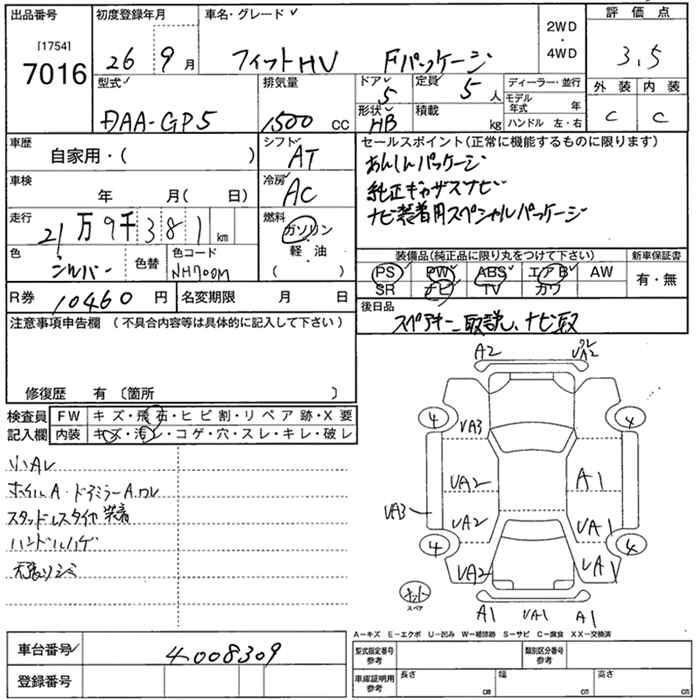 出品番号 初度登録年月 車名・グレード 評価点
[1754]
7016 26 9月 フィットHV Fパッケージ 2WD・4WD 3.5
型式 排気量 ドア 定員 ディーラー・並行 外装 内装
DAA-GP5 1500 CC 5 5人 モデル年式 年 C C
形状 HB 積載 kg ハンドル 左・右
車歴 自家用・( ) シフト AT セールスポイント(正常に機能するものに限ります)
あんしんパッケージ
車検 年 月( 日) 冷房 AC 純正ギャザズナビ
ナビ装着用スペシャルパッケージ
走行 21万9千381km 燃料 ガソリン 軽・油 ( )
色 シルバー 色替 色コード NH700M
装備品(純正品に限り丸をつけて下さい) 新車保証書
PS PW ABS エアB AW 有・無
SR ナビ TV カワ
R券 10460円 名変期限 月 日
後日品 スペアキー、取説、ナビ取
注意事項申告欄 (不具合内容等は具体的に記入して下さい)
修復歴 有 〔箇所 〕
検査員記入欄 FW キズ・飛石・ヒビ割・リペア跡・X要
内装 キズ・汚レ・コゲ・穴・スレ・キレ・破レ
小Aレ
ホイルA・ドアミラーA.ワレ
スタッドレスタイヤ装着
ハンドルハゲ
天張リシミ
A2 ワレ UA2
4 4
UA3
UA2 A1
UA3 UA2 UA1
4 4
UA2 UA1
スペア
A1 UA1 A1
A-キズ E-エクボ U-凹み W-補修跡 S-サビ C-腐食 XX-交換済
車台番号 4008309
登録番号
型式指定番号 参考 類別区分番号 参考
車庫証明用 参考 長さ cm 幅 cm 高さ cm